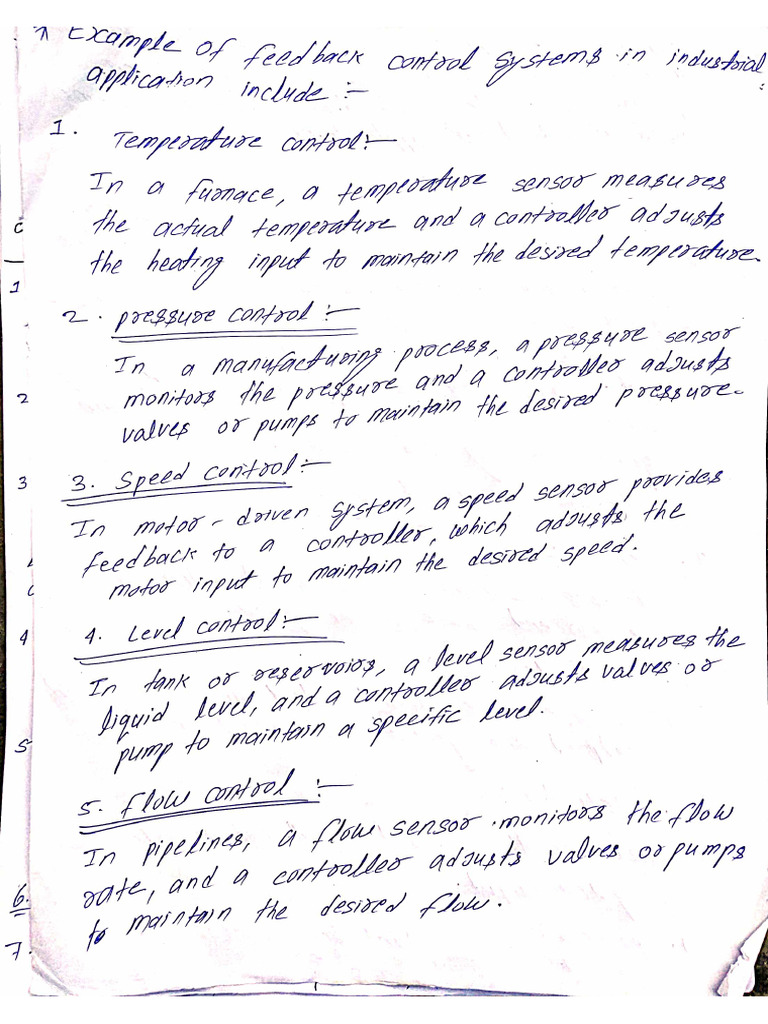 Example of feedback control systems in industrial
application include :-
1. Temperature control:-
In a furnace, a temperature sensor measures
the actual temperature and a controller adjusts
the heating input to maintain the desired temperature.
2. pressure control :-
In a manufacturing process, a pressure sensor
monitors the pressure and a controller adjusts
valves or pumps to maintain the desired pressure.
3. Speed control :-
In motor-driven system, a speed sensor provides
feedback to a controller, which adjusts the
motor input to maintain the desired speed.
4. Level control :-
In tank or reservoirs, a level sensor measures the
liquid level, and a controller adjusts valves or
pump to maintain a specific level.
5. flow control :-
In pipelines, a flow sensor monitors the flow
rate, and a controller adjusts valves or pumps
to maintain the desired flow.
1
2
3
4
5
6.
7.